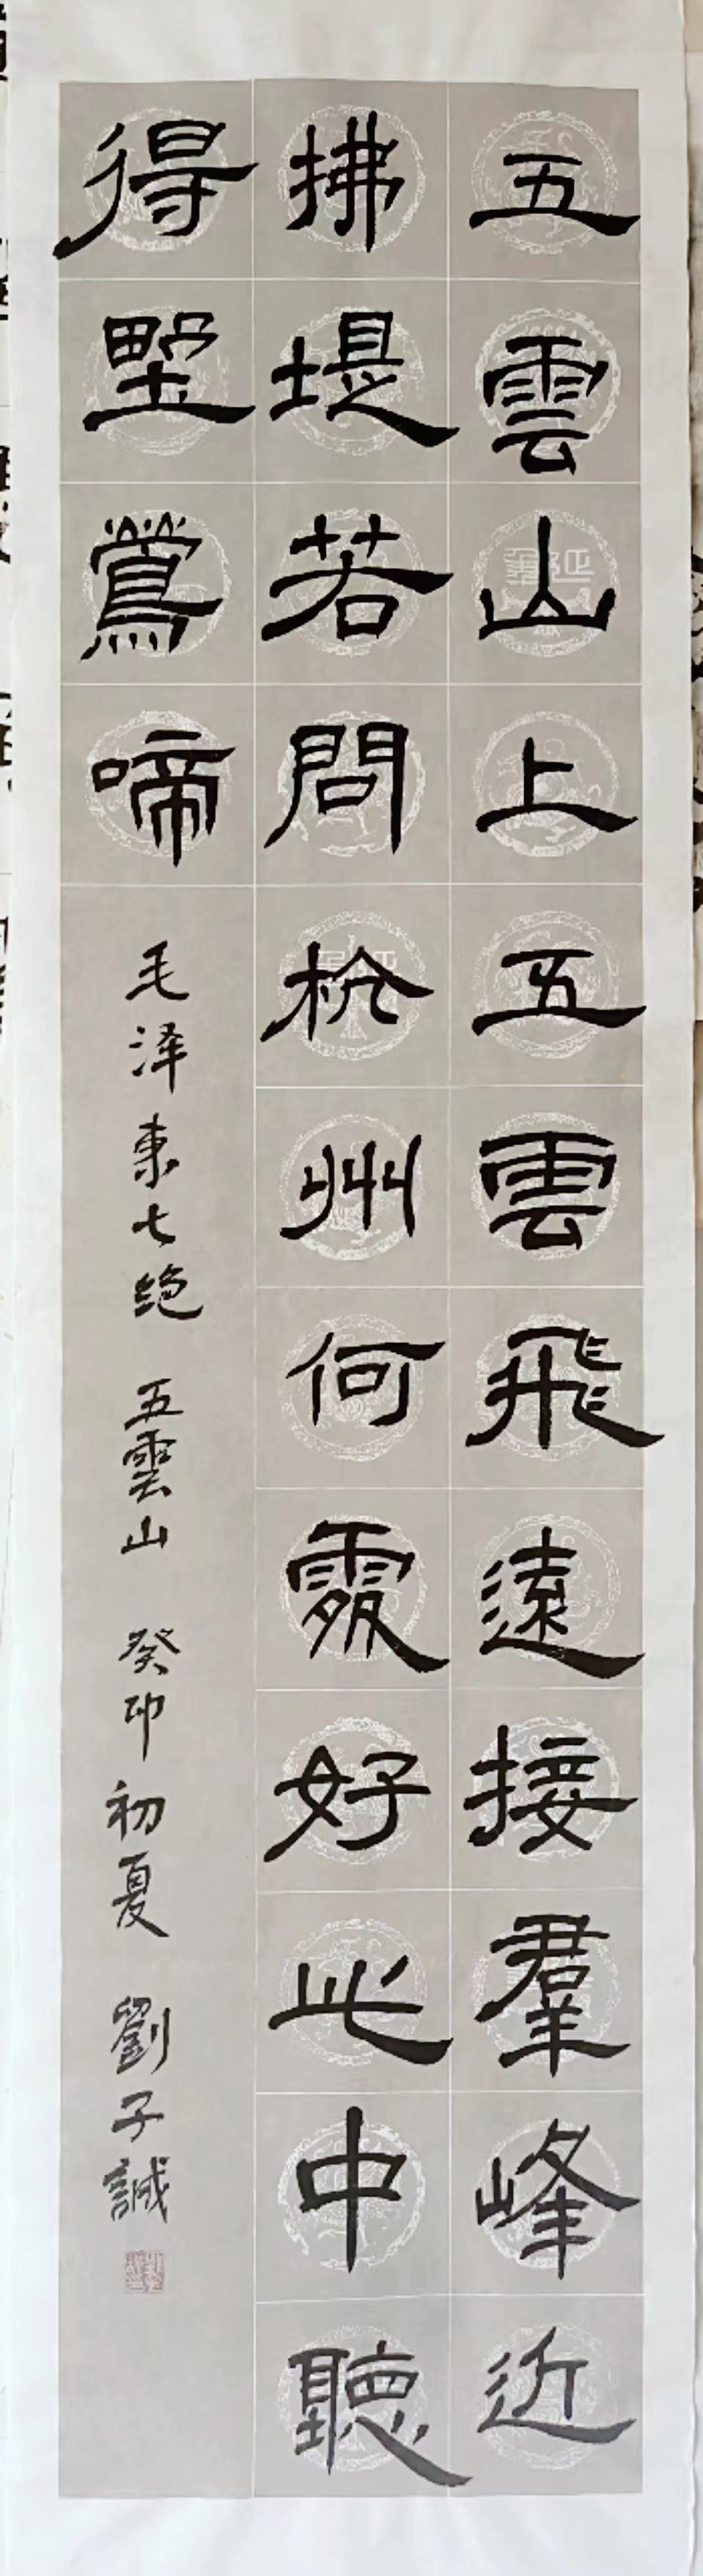 五雲山上五雲飛遠接羣峰近
拂堤若問杭州何處好此中聽
得野鶯啼
毛泽東七绝 五雲山 癸卯初夏 劉子誠